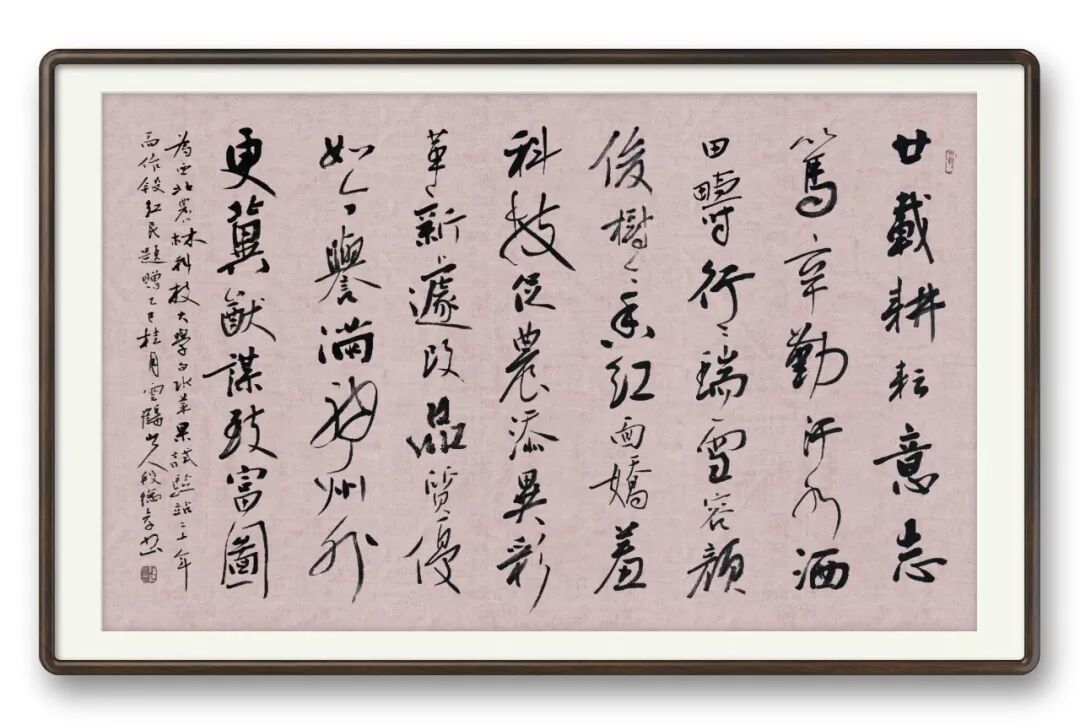 廿載耕耘意志
篤辛勤汗水洒
田疇行行瑞雪容顏
俊樹樹紅面嬌羞
科技促農添異彩
革新遽改品質優
如今譽滿神州外
更冀猷謀致富圖
為西北農林科技大學白水苹果試驗站二十年
而作段紅民題贈乙巳桂月雲鶴山人段德書